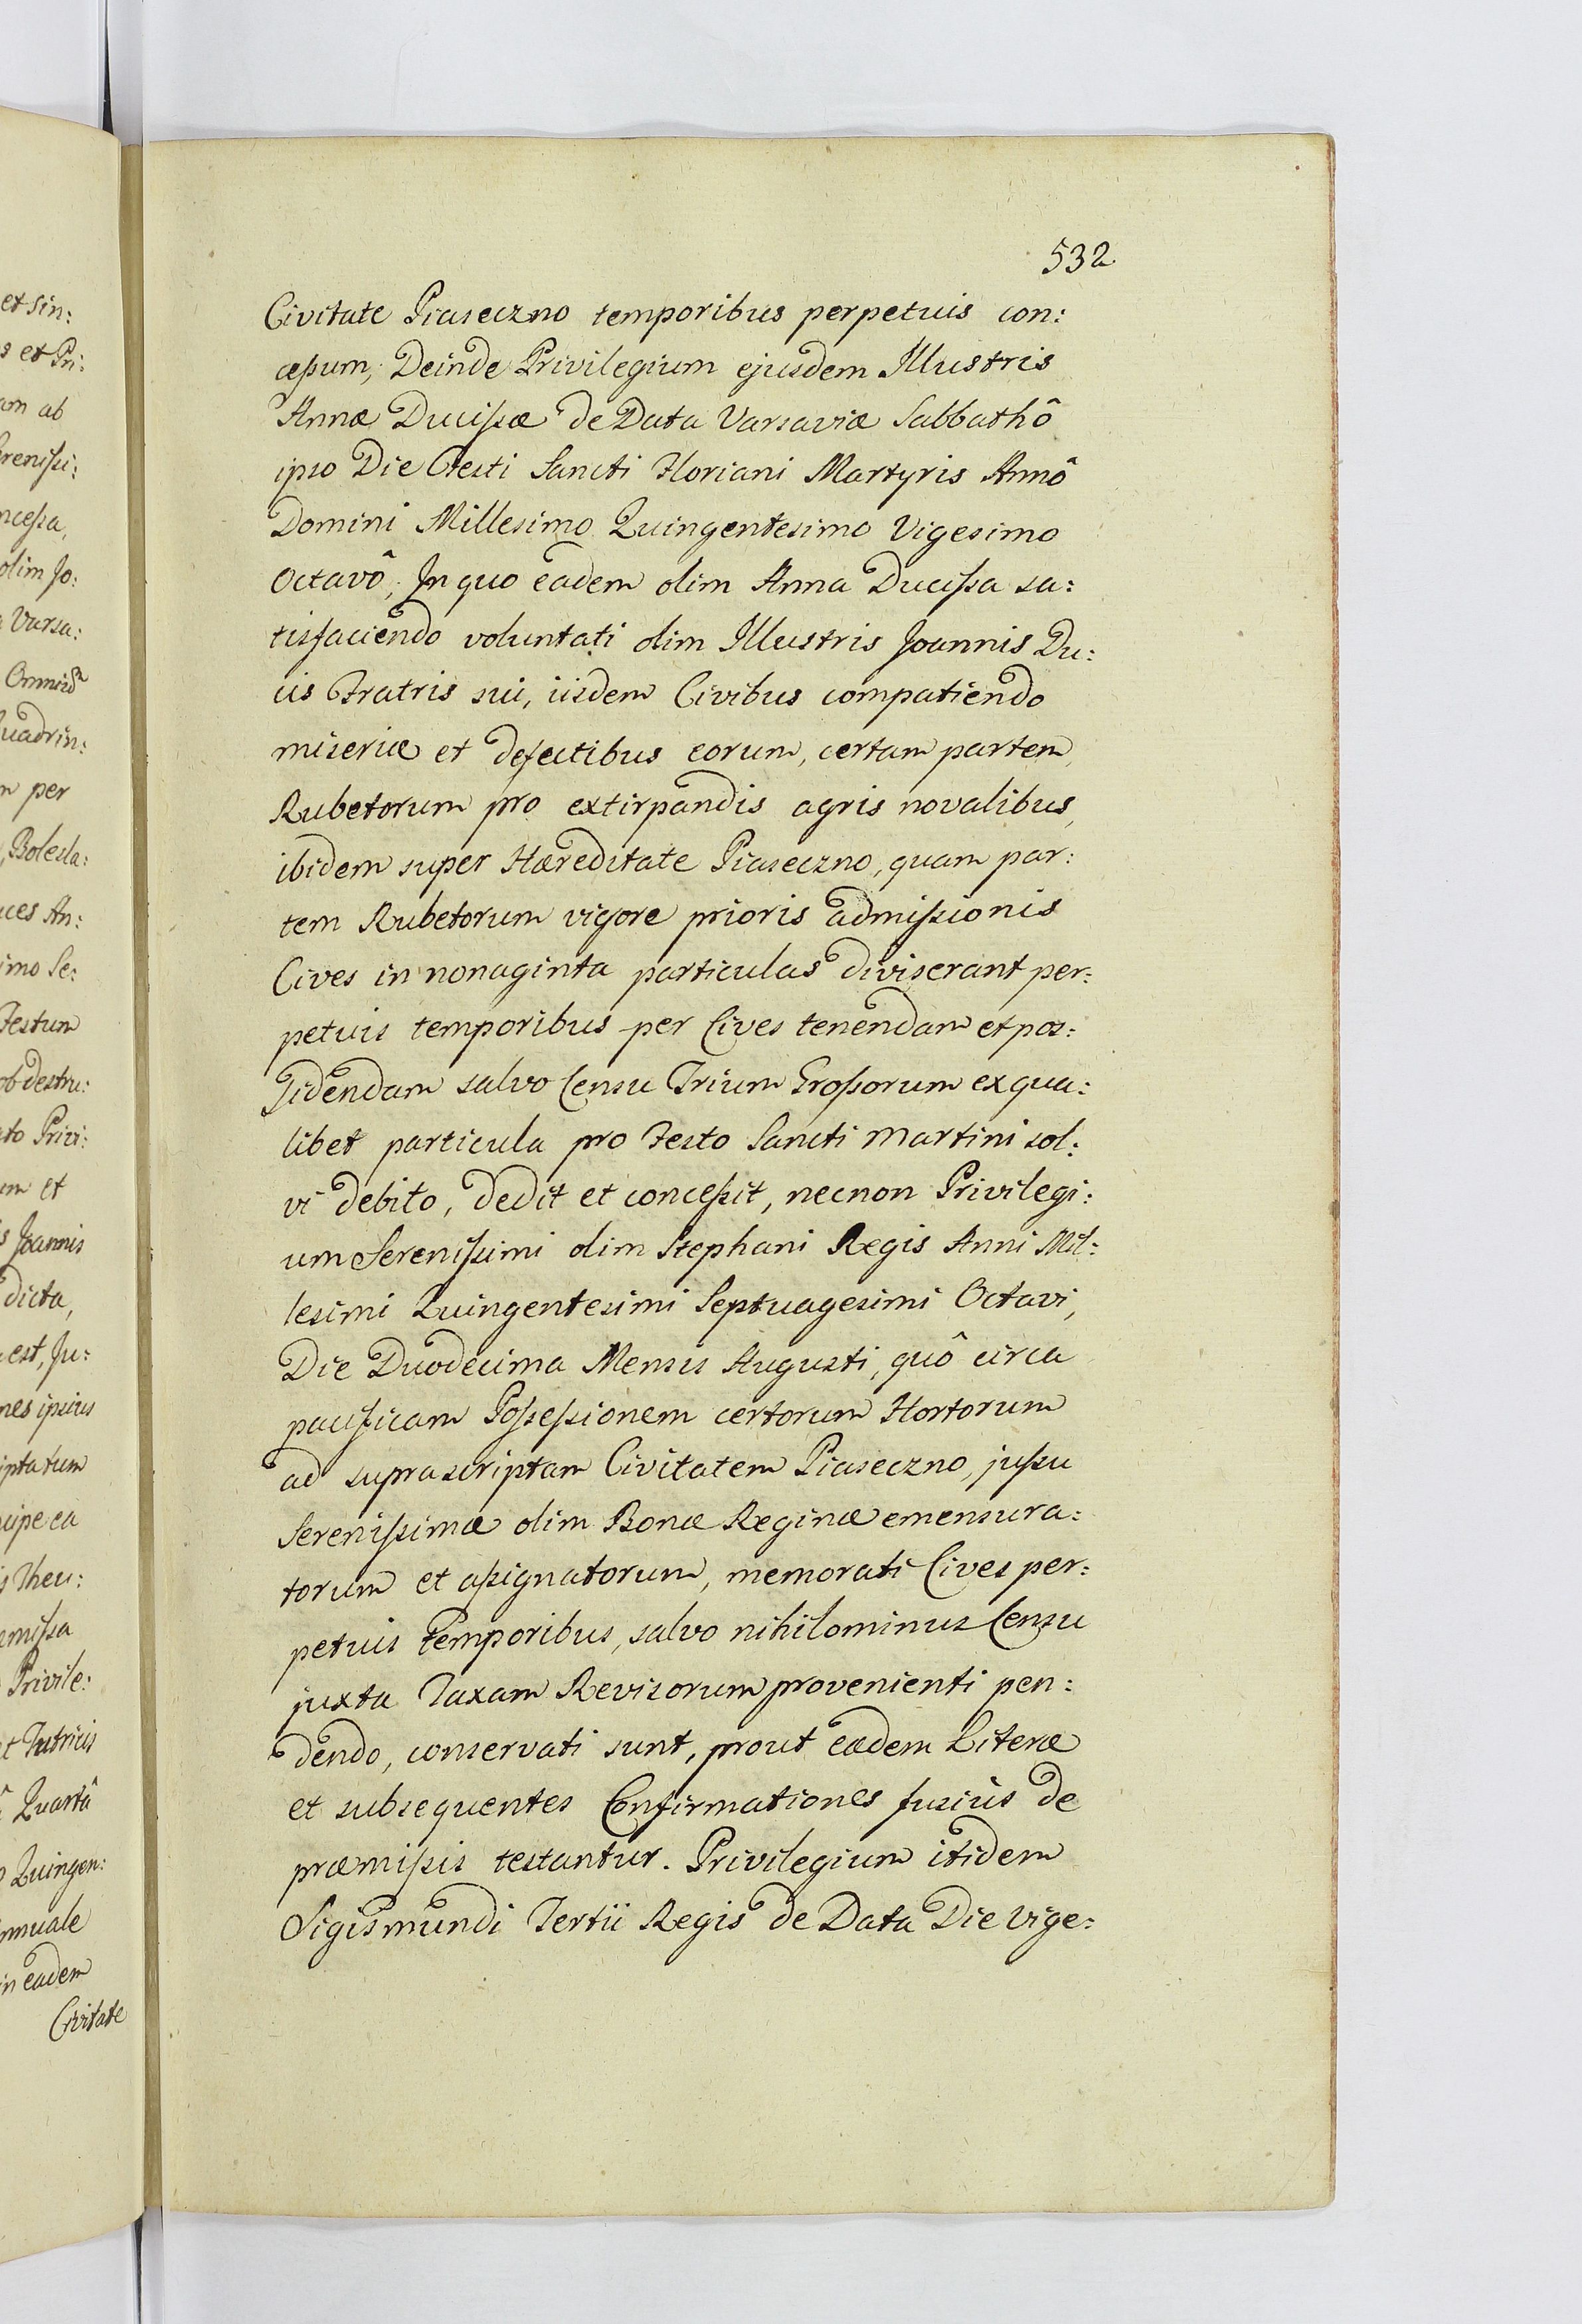 et sin:
s et Pri:
am ab
renissi:
ncessa,
olim Jo:
Varsa:
Quadrin:
m per
, Bolesla:
uces An:
imo Se:
Festum
ob destru:
to Privi:
um et
s Joannis
dicta,
est, Ju:
nes ipsius
iptatum
cipe ea
s Theu:
missa
Privile:
t Tutricis
â Quartâ
Quingen:
nnuale
in eadem
Civitate
532
Civitate Piaseczno temporibus perpetuis con:
cessum, Deinde Privilegium ejusdem Illustris
Annæ Ducissæ de Data Varsaviæ Sabbathô
ipso Die Festi Sancti Floriani Martyris Annô
Domini Millesimo Quingentesimo Vigesimo
Octavô, In quo eadem olim Anna Ducissa sa:
tisfaciendo voluntati olim Illustris Joannis Du:
cis Fratris sui, iisdem Civibus compatiendo
miseriæ et defectibus eorum, certam partem
Rubetorum pro extirpandis agris novalibus,
ibidem super Hæreditate Piaseczno, quam par:
tem Rubetorum vigore prioris admissionis
Cives in nonaginta particulas diviserant per:
petuis temporibus per Cives tenendam et pos:
sidendam salvo Censu Trium Grossorum ex qua:
libet particula pro Festo Sancti Martini sol:
vi debito, dedit et concessit, necnon Privilegi:
um Serenissimi olim Stephani Regis Anni Mil:
lesimi Quingentesimi Septuagesimi Octavi,
Die Duodecima Mensis Augusti, quô circa
pacificam Possessionem certorum Hortorum
ad suprascriptam Civitatem Piaseczno, jussu
Serenissimæ olim Bonæ Reginæ emensura:
torum et assignatorum, memorati Cives per:
petuis temporibus, salvo nihilominus Censu
juxta Taxam Revisorum provenienti pen:
dendo, conservati sunt, prout eædem Literæ
et subsequentes Confirmationes fusius de
præmissis testantur. Privilegium itidem
Sigismundi Tertii Regis de Data Die Vige: